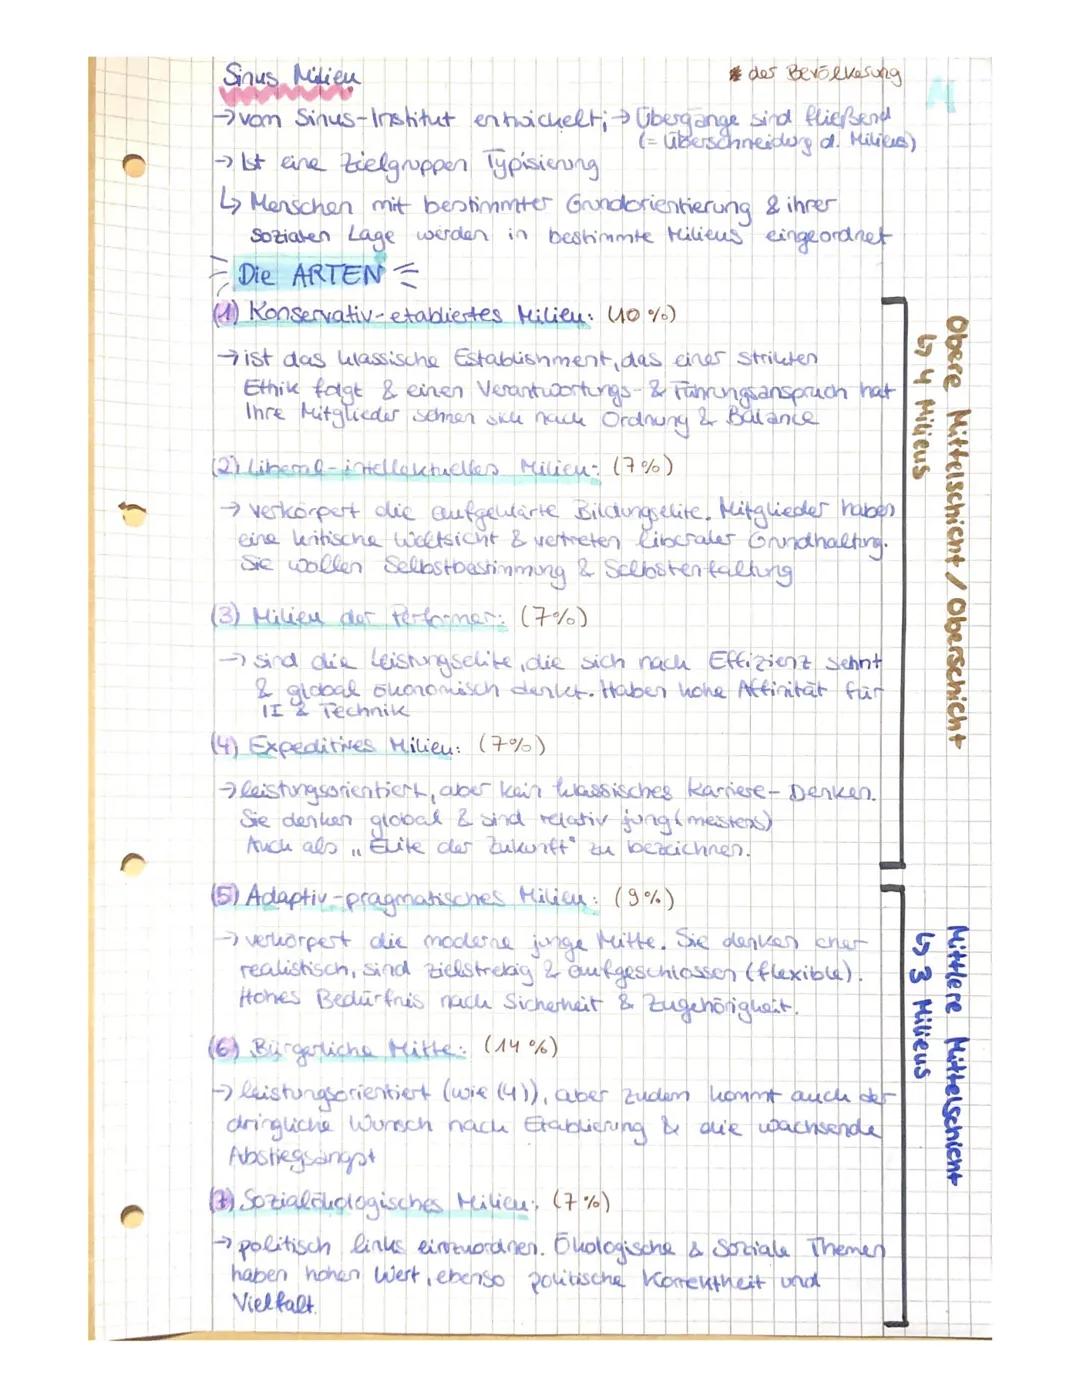 Sinus Milieu
* der Bevölkerung
→ vom Sinus-Institut entwickelt; → Übergänge sind fließend
(= Überschneidung d. Milieus)
→ Ist eine Zielgruppen Typisierung
↳ Menschen mit bestimmter Grundorientierung & ihrer
sozialen Lage werden in bestimmte Milieus eingeordnet
Die ARTEN
(1) Konservativ-etabliertes Milieu: (10%)
→ ist das klassische Establishment, das einer strikten
Ethik folgt & einen Verantwortungs- & Führungsanspruch hat
Ihre Mitglieder sehnen sich nach Ordnung & Balance
(2) Liberal-intellektuelles Milieu: (7%)
→ verkörpert die aufgeklärte Bildungselite. Mitglieder haben
eine kritische Weltsicht & vertreten liberaler Grundhaltung.
Sie wollen Selbstbestimmung & Selbstentfaltung
(3) Milieu der Performer: (7%)
→ sind die Leistungselite, die sich nach Effizienz sehnt
& global ökonomisch denkt. Haben hohe Affinität für
IT & Technik
(4) Expeditives Milieu: (7%)
→ leistungsorientiert, aber kein klassisches Karriere-Denken.
Sie denken global & sind relativ jung (meistens)
Auch als „Elite der Zukunft“ zu bezeichnen.
(5) Adaptiv-pragmatisches Milieu: (9%)
→ verkörpert die moderne junge Mitte. Sie denken eher
realistisch, sind zielstrebig & aufgeschlossen (flexible).
Hohes Bedürfnis nach Sicherheit & Zugehörigkeit.
(6) Bürgerliche Mitte: (14%)
→ leistungsorientiert (wie (4)), aber zudem kommt auch der
dringliche Wunsch nach Etablierung & die wachsende
Abstiegsangst
(7) Sozialökologisches Milieu: (7%)
→ politisch links einzuordnen. Ökologische & Soziale Themen
haben hohen Wert, ebenso politische Korrektheit und
Vielfalt.
Obere Mittelschicht / Oberschicht
↳ 4 Milieus
Mittlere Mittelschicht
↳ 3 Milieus